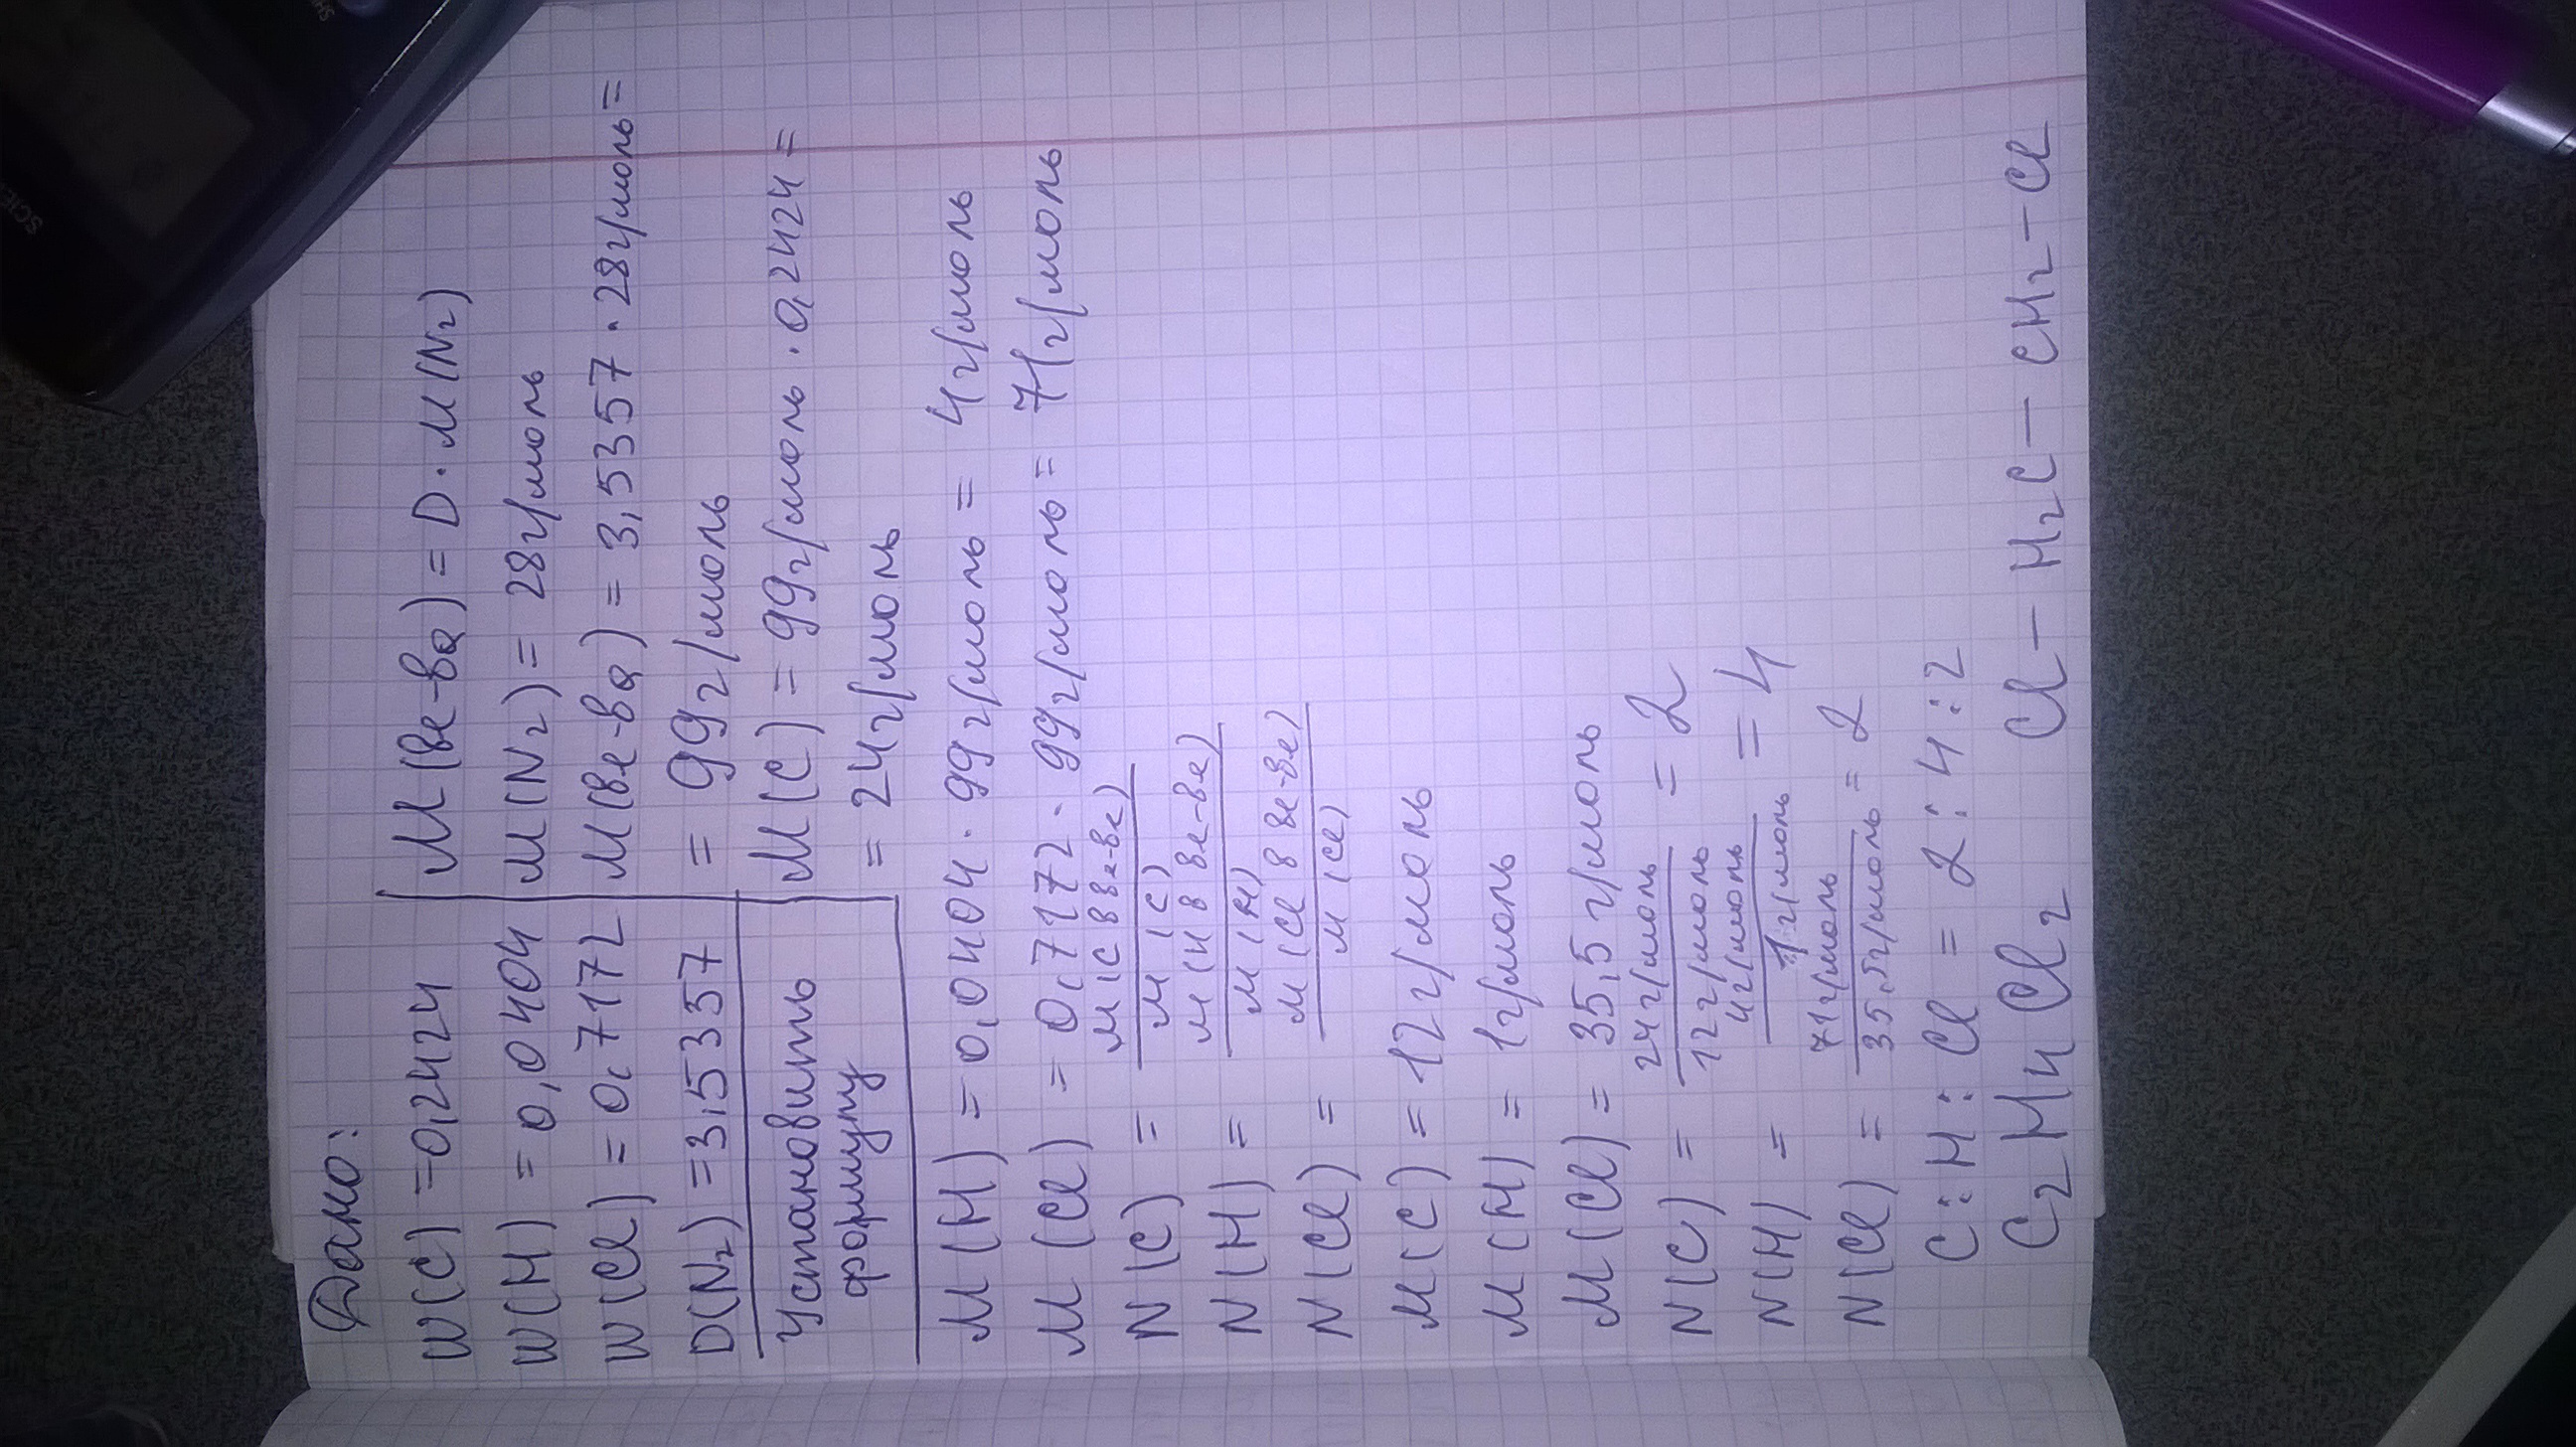 Дано:
W(C) = 0,2424
W(H) = 0,0404
W(Cl) = 0,7172
D(N₂) = 3,5357
Установить
формулу
M(ве-ва) = D · M(N₂)
M(N₂) = 28г/моль
M(ве-ва) = 3,5357 · 28г/моль =
= 99г/моль
M(C) = 99г/моль · 0,2424 =
= 24г/моль
M(H) = 0,0404 · 99г/моль = 4г/моль
M(Cl) = 0,7172 · 99г/моль = 71г/моль
N(C) = M(C в ве-ве) / M(C)
N(H) = M(H в ве-ве) / M(H)
N(Cl) = M(Cl в ве-ве) / M(Cl)
M(C) = 12г/моль
M(H) = 1г/моль
M(Cl) = 35,5г/моль
N(C) = 24г/моль / 12г/моль = 2
N(H) = 4г/моль / 1г/моль = 4
N(Cl) = 71г/моль / 35,5г/моль = 2
C : H : Cl = 2 : 4 : 2
C₂H₄Cl₂ Cl – H₂C – CH₂ – Cl